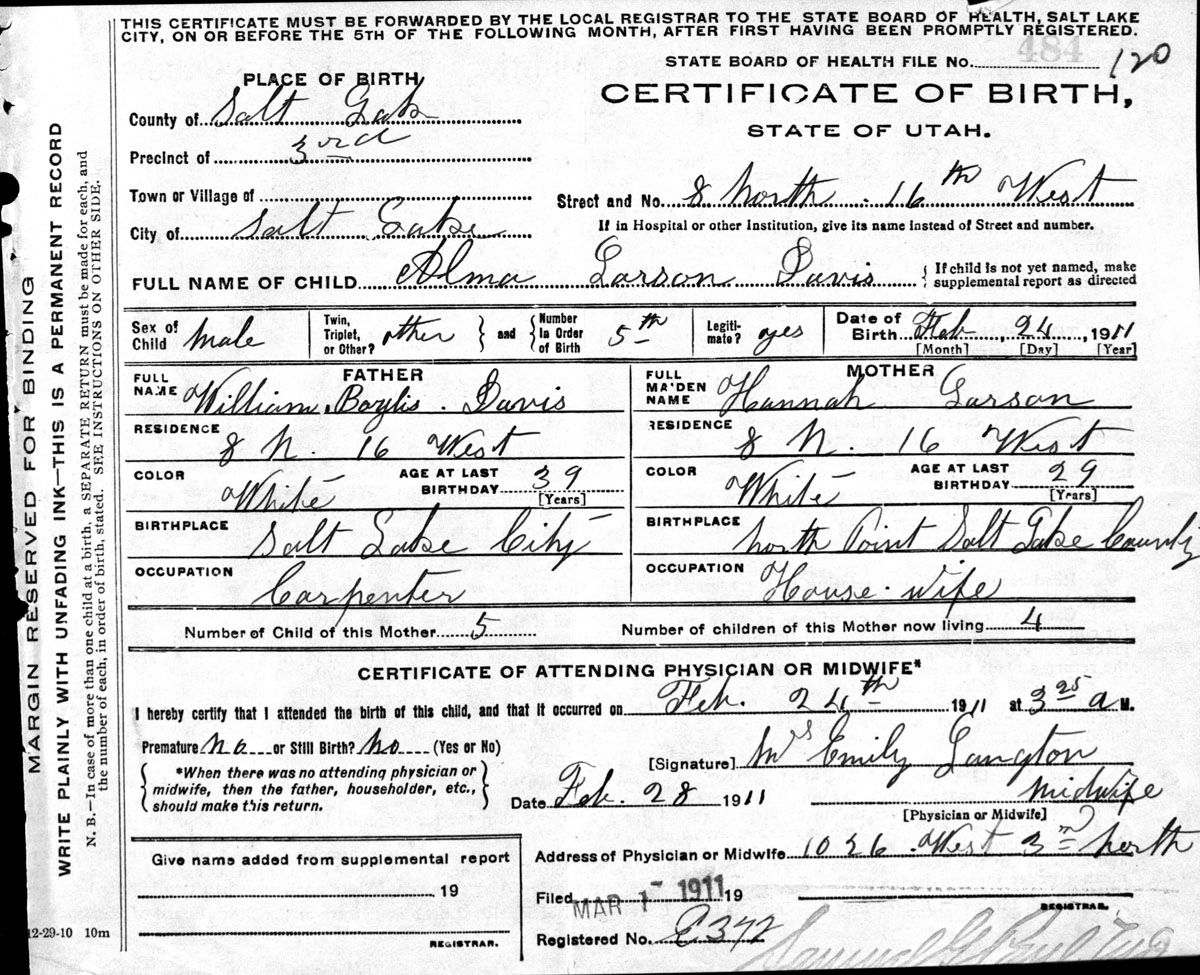 THIS CERTIFICATE MUST BE FORWARDED BY THE LOCAL REGISTRAR TO THE STATE BOARD OF HEALTH, SALT LAKE
CITY, ON OR BEFORE THE 5TH OF THE FOLLOWING MONTH, AFTER FIRST HAVING BEEN PROMPTLY REGISTERED.
484
STATE BOARD OF HEALTH FILE No. 120
PLACE OF BIRTH
CERTIFICATE OF BIRTH,
County of Salt Lake
STATE OF UTAH.
Precinct of 3rd
Town or Village of
Street and No. 8 North . 16th West
City of Salt Lake
If in Hospital or other Institution, give its name instead of Street and number.
FULL NAME OF CHILD Alma Larson Davis { If child is not yet named, make
supplemental report as directed
Sex of Child Male
Twin, Triplet, or Other? other } and { Number In Order of Birth 5th
Legiti-mate? yes
Date of Birth Feb, 24, 1911
[Month] [Day] [Year]
FATHER
FULL NAME William Baylis . Davis
RESIDENCE
8 N. 16 West
COLOR White AGE AT LAST BIRTHDAY 39
[Years]
BIRTHPLACE
Salt Lake City
OCCUPATION
Carpenter
MOTHER
FULL MAIDEN NAME Hannah Larson
RESIDENCE
8 N. 16 West
COLOR White AGE AT LAST BIRTHDAY 29
[Years]
BIRTHPLACE
North Point Salt Lake County
OCCUPATION
House-wife
Number of Child of this Mother 5 Number of children of this Mother now living 4
CERTIFICATE OF ATTENDING PHYSICIAN OR MIDWIFE*
I hereby certify that I attended the birth of this child, and that it occurred on Feb. 24th 1911 at 3 25 a M.
Premature No or Still Birth? No (Yes or No)
[Signature] Mrs Emily Langton
{ *When there was no attending physician or
midwife, then the father, householder, etc.,
should make this return. }
Date Feb. 28 1911 Midwife
[Physician or Midwife]
Give name added from supplemental report
Address of Physician or Midwife 1026 . West 3rd North
19
Filed MAR 1 - 1911 19
REGISTRAR.
REGISTRAR.
Registered No. E372
12-29-10 10m
MARGIN RESERVED FOR BINDING
WRITE PLAINLY WITH UNFADING INK—THIS IS A PERMANENT RECORD
N. B.—In case of more than one child at a birth, a SEPARATE RETURN must be made for each, and
the number of each, in order of birth, stated. SEE INSTRUCTIONS ON OTHER SIDE.